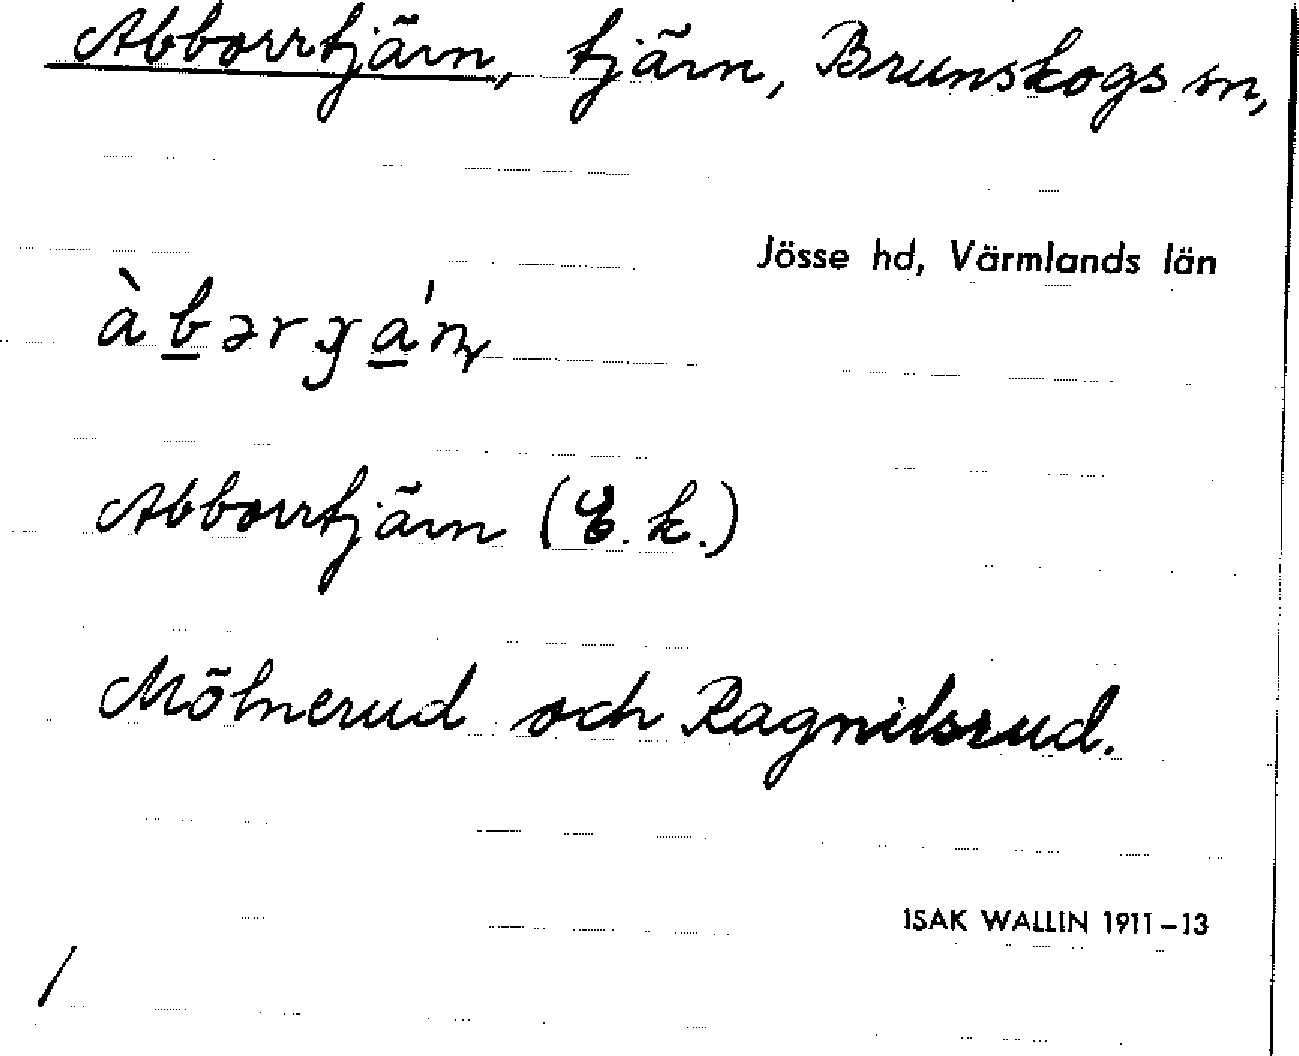 Abborrtjärn, tjärn, Brunskogs sn,
Jösse hd, Värmlands län
Abborrtjärn (E. k.)
Mölnerud och Ragnilsrud.
ISAK WALLIN 1911–13
/